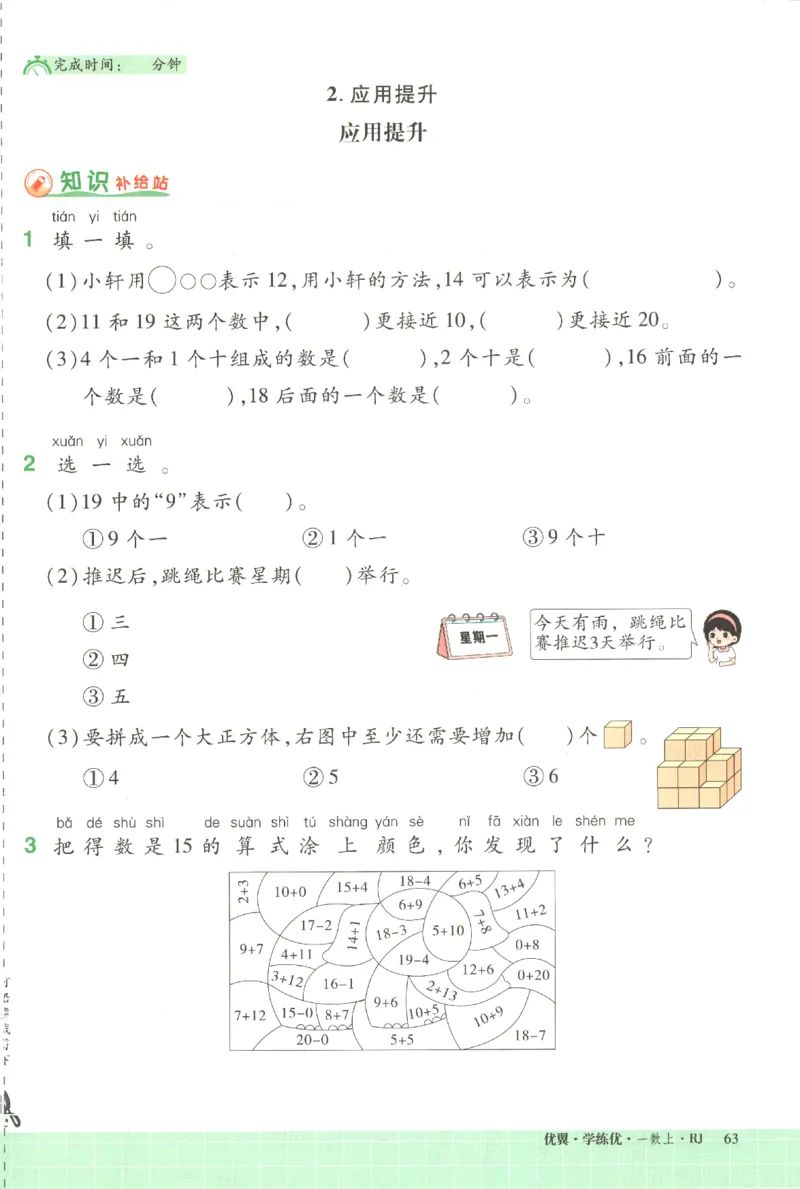 完成时间： 分钟
2. 应用提升
应用提升
知识补给站
tián yi tián
1 填一填。
(1)小轩用◯○○表示12,用小轩的方法,14可以表示为( )。
(2)11和19这两个数中,( )更接近10,( )更接近20。
(3)4个一和1个十组成的数是( ),2个十是( ),16前面的一
个数是( ),18后面的一个数是( )。
xuǎn yi xuǎn
2 选一选。
(1)19中的“9”表示( )。
①9个一 ②1个一 ③9个十
(2)推迟后,跳绳比赛星期( )举行。
①三
②四
③五
星期一
今天有雨，跳绳比
赛推迟3天举行。
(3)要拼成一个大正方体,右图中至少还需要增加( )个 。
①4 ②5 ③6
bǎ dé shù shì de suàn shì tú shàng yán sè nǐ fā xiàn le shén me
3 把得数是15的算式涂上颜色,你发现了什么?
2+3 10+0 15+4 18-4 6+5 13+4
6+9 7+8 11+2
17-2 14+1 18-3 5+10
9+7 4+11 19-4 0+8
3+12 16-1 2+13 12+6 0+20
7+12 15-0 8+7 9+6 10+5 10+9
20-0 5+5 18-7
优翼·学练优·一数上·RJ 63